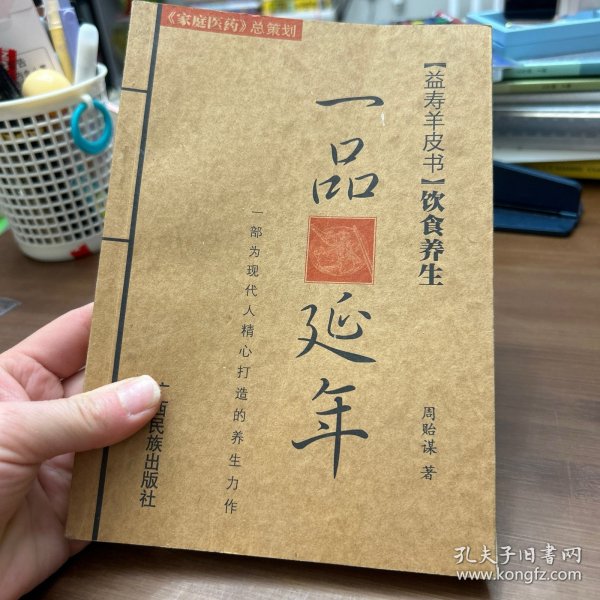 《家庭医药》总策划
【益寿羊皮书】饮食养生
一品延年
一部为现代人精心打造的养生力作
周贻谋 著
广西民族出版社
孔夫子旧书网
www.kongfz.com